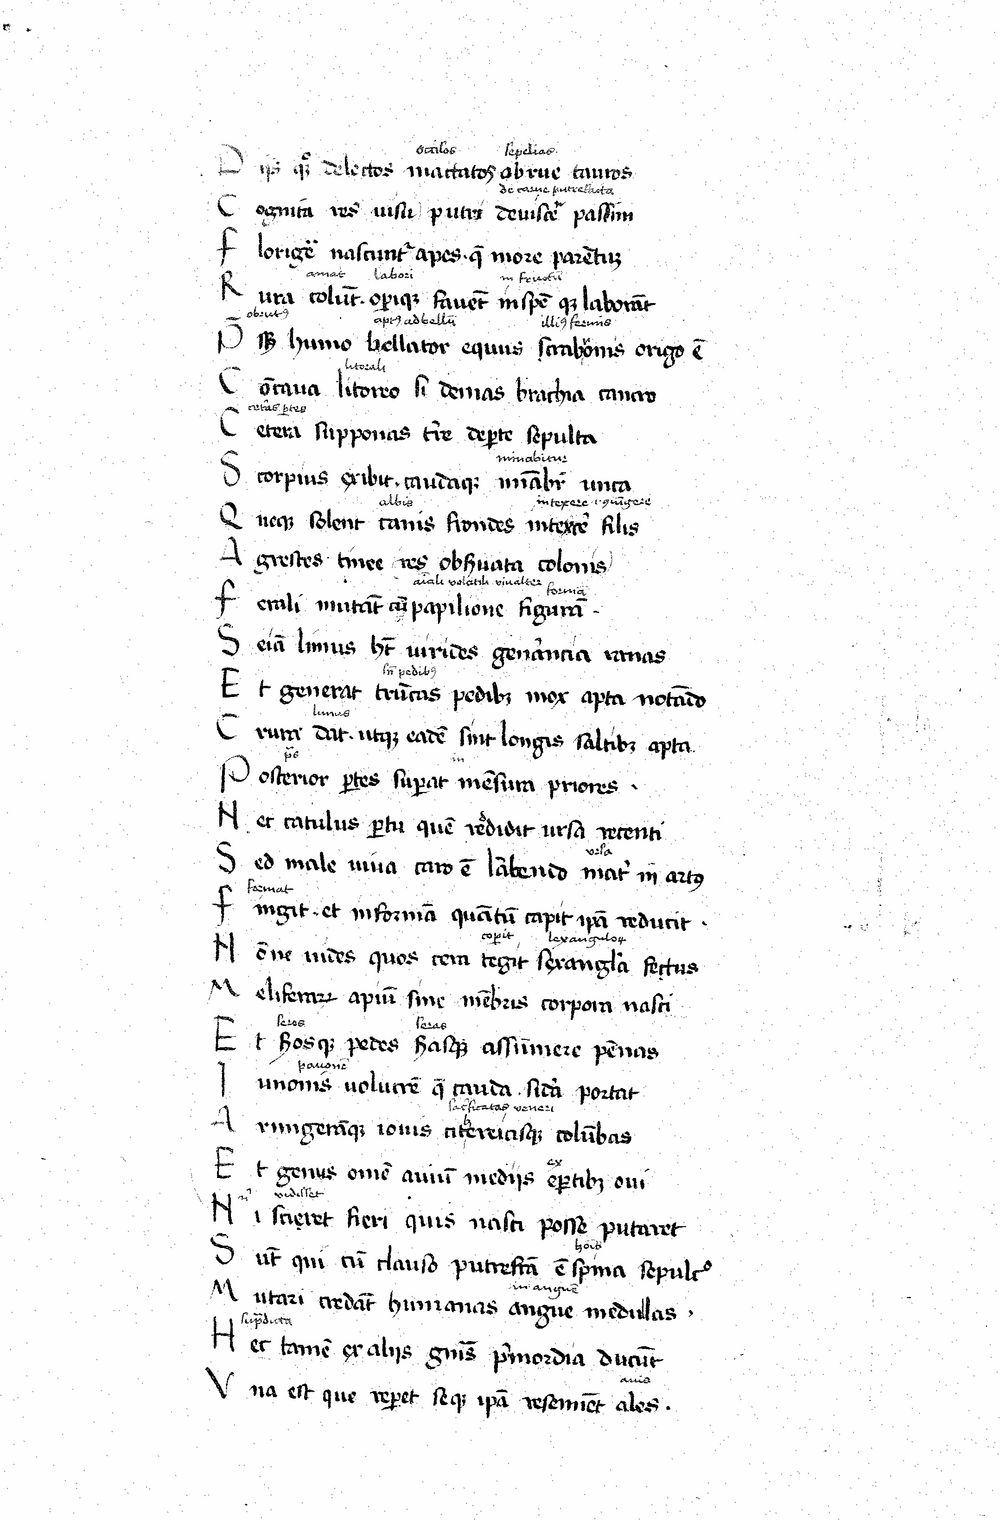 occisos sepelias
D iis q̊ꝫ delectos mactatos obrue tauros
de carne putrefacta
C ognita res usu putri de uiscē passim
F lorigē nascunt᷑ apes. q̄ more parētuꝫ
amat labori in fructū
R ura colūt. opiqꝫ fauēt in spē qꝫ laborāt
obrutꝰ aptꝰ ad bellū illiꝰ forme
P ssꝰ humo bellator equus scrabōnis origo ē
litorali
C ōcaua litoreo si demas brachia cancro
cetᷓas ꝑtes
C etera supponas tr̄e de ꝑte sepulta
minabitur
S corpius exibit. caudaqꝫ minābr̄ unca
albis intexere
Q ueqꝫ solent canis frondes intexē filis
A grestes tinee res obs̄uata colonis
aīali volatili
formā
F erali mutāt cū papilione figurā.
S eīa limus hт̄ uirides genᷓancia ranas
sn̄ pedibꝰ
E t generat trūcas pedibꝫ mox apta notādo
limus
C rura dat. utqꝫ eadē sint longis saltibꝫ apta.
in
P osterior ꝑtes suꝑat mēsura priores.
N ec catulus ꝑtu quē reddidit ursa recenti
ursa
S ed male uiua caro ē lābendo mat᷑ in artꝰ
format
F ingit. et in formā quātū capit ip̄a reducit.
N ōne uides quos cera tegit sexangl̄a fectus
M elliferarꝝ apiū sine mēbris corpora nasci
seros seras
E t s̄osqꝫ pedes s̄asqꝫ assūmere pēnas
pauonē
I unonis uolucrē q̄ cauda sidᷓa portat
sac̄ficatas veneri
A rmigerāqꝫ iouis citereiasqꝫ colūbas
ex
E t genus omē auiū mediis e ꝑtibꝫ oui
vidisset
N i sciret fieri quis nasci posse putaret
hoīs
S ūt qui cū clauso putrefctā ē spina sepulcº
in anguē
M utari credāt humanas angue medullas.
sup̄dicta
H ec tamē ex aliis gn̄is p̄mordia ducūt
auis
V na est que reꝑet seqꝫ ip̄a resemīet ales.